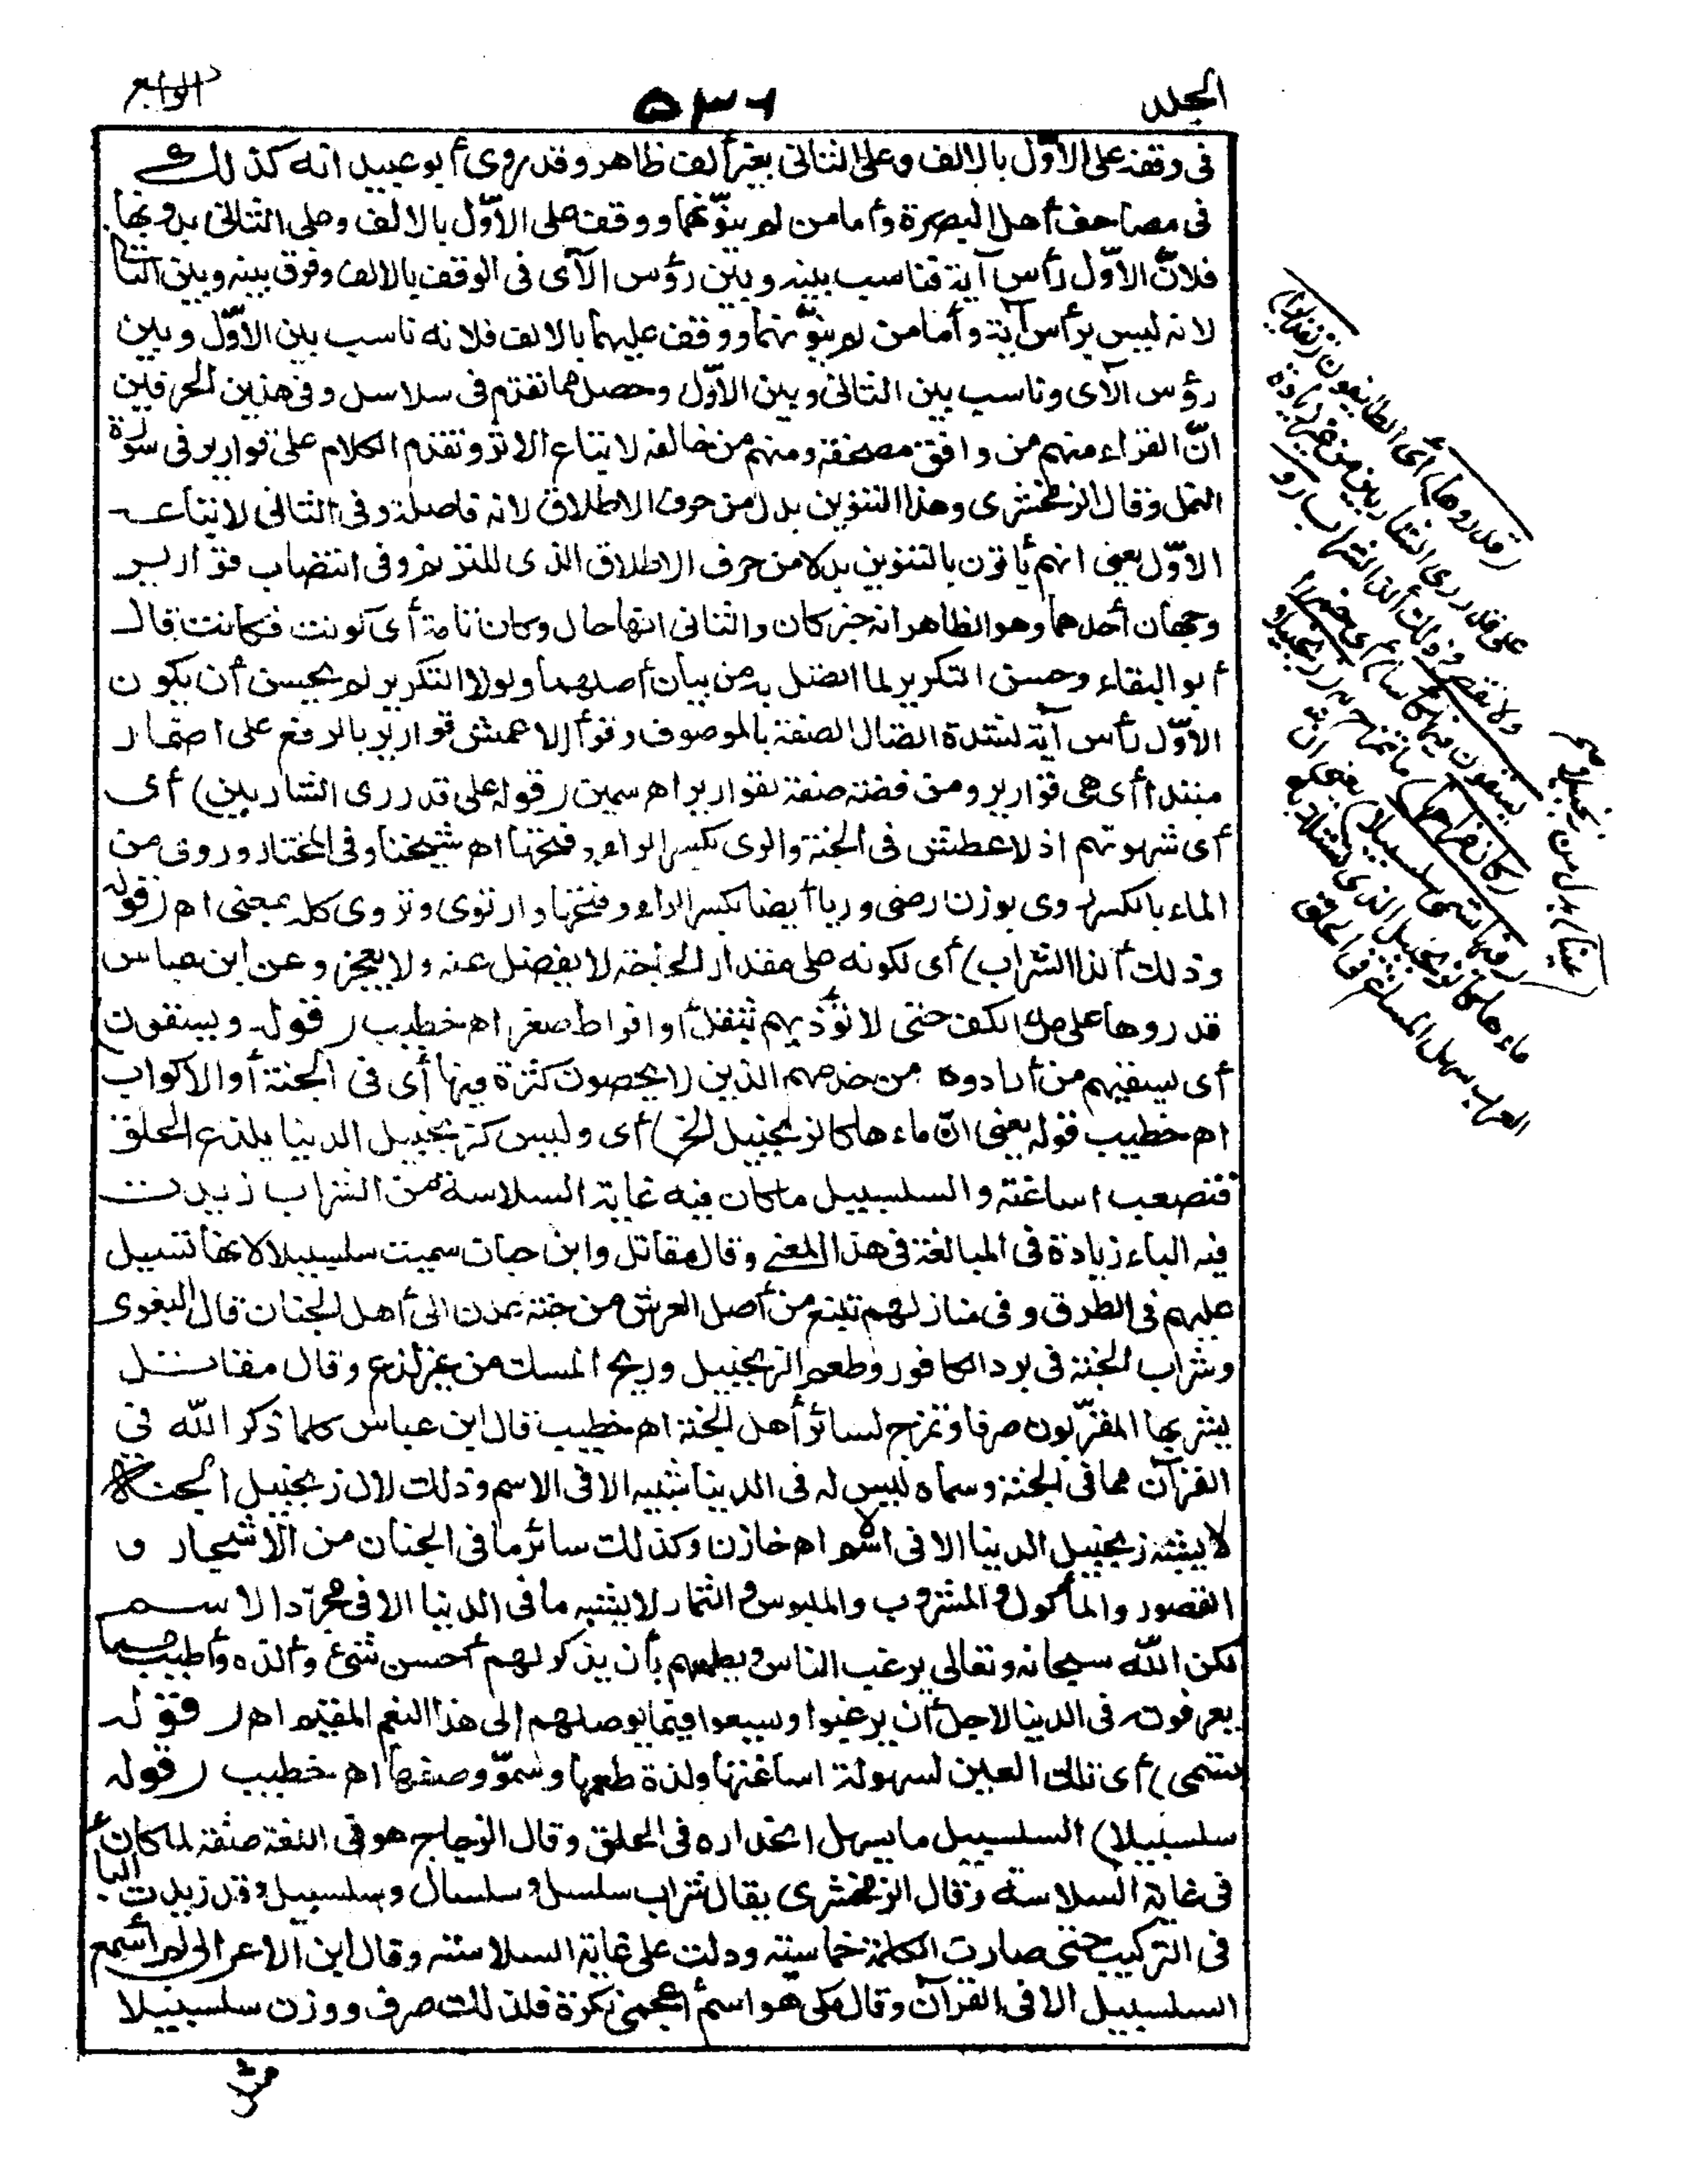 الجلد
٥٣٦
الرابع
فى وقفه على الأوّل بالالف وعلى الثانى بغير ألف ظاهر وقد روى أبو عبيد انه كذلك
فى مصاحف أهل البصرة وأما من لم ينوّنهما ووقف على الأوّل بالالف وعلى الثانى بدونها
فلانّ الأوّل رأس آية فناسب بينه وبين رؤس الآى فى الوقف بالالف وفرق بينه وبين الثانى
لانه ليس برأس آية وأما من لم ينوّنهما ووقف عليهما بالالف فلانه ناسب بين الأوّل وبين
رؤس الآى وناسب بين الثانى وبين الأوّل وحصل مما تقدّم فى سلاسل وفى هذين الحرفين
انّ القراء منهم من وافق مصحفه ومنهم من خالفه لاتباع الاثر وتقدّم الكلام على قوارير فى سورة
النمل وقال الزمخشرى وهذا التنوين بدل من حرف الاطلاق لانه فاصلة وفى الثانى لاتباعه
الأوّل يعنى انهم يأتون بالتنوين بدلا من حرف الاطلاق الذى للترنم وفى انتصاب قوارير
وجهان أحدهما وهو الظاهر انه خبر كان والثانى انها حال وكان تامة أى كونت فكانت قال
أبو البقاء وحسن التكرير لما اتصل به من بيان أصلهما ولولا التكرير لم يحسن أن يكون
الأوّل رأس آية لشدة اتصال الصفة بالموصوف وقرأ الاعمش قوارير بالرفع على اضمار
مبتدا أى هى قوارير ومن فضة صفة لقوارير اه سمين (قوله على قدر رى الشاربين) أى
أى شهوتهم اذ لا عطش فى الجنة والرى بكسر الراء وفتحها اه شيخنا وفى المختار وروى من
الماء بالكسر روى بوزن رضى وريا أيضا بكسر الراء وفتحها وارتوى وتروى كله بمعنى اه (قوله
وذلك ألذ الشراب) أى لكونه على مقدار الحاجة لا يفضل عنه ولا يعجز وعن ابن عباس
قدروها على ملء الكف حتى لا تؤذيهم بثقل أو افراط صغر اه خطيب (قوله ويسقون)
أى يسقيهم من أرادوه من خدمهم الذين لا يحصون كثرة فيها أى فى الجنة أو الاكواب
اه خطيب قوله يعنى انّ ماءها كالزنجبيل الخ) أى وليس كزنجبيل الدنيا يلذع الحلق
فتصعب اساغته والسلسبيل ما كان فيه غاية السلاسة من الشراب زيدت
فيه الباء زيادة فى المبالغة فى هذا المعنى وقال مقاتل وابن حبان سميت سلسبيلا لانها تسيل
عليهم فى الطرق وفى منازلهم تنبع من أصل العرش من جنة عدن الى أهل الجنان قال البغوى
وشراب الجنة فى برد الكافور وطعم الزنجبيل وريح المسك من غير لذع وقال مقاتل
يشربها المقرّبون صرفا وتمزج لسائر أهل الجنة اه خطيب قال ابن عباس كلما ذكر الله فى
القرآن مما فى الجنة وسماه ليس له فى الدنيا شبيه الا فى الاسم وذلك لان زنجبيل الجنة
لا يشبه زنجبيل الدنيا الا فى الاسم اه خازن وكذلك سائر ما فى الجنان من الاشجار و
القصور والمأكول والمشروب والملبوس والثمار لا يشبه ما فى الدنيا الا فى مجرّد الاسم
لكن الله سبحانه وتعالى يرغب الناس ويطمعهم بأن يذكر لهم أحسن شئ وألذه وأطيبه مما
يعرفونه فى الدنيا لاجل أن يرغبوا ويسعوا فيما يوصلهم إلى هذا النعيم المقيم اه (قوله
تسمى) أى تلك العين لسهولة اساغتها ولذة طعمها وسموّ وصفها اه خطيب (قوله
سلسبيلا) السلسبيل ما يسهل انحداره فى الحلق وقال الزجاج هو فى اللغة صفة لما كان
فى غاية السلاسة وقال الزمخشرى يقال شراب سلسل وسلسال وسلسبيل وقد زيدت الباء
فى التركيب حتى صارت الكلمة خماسية ودلت على غاية السلاسة وقال ابن الاعرابى لم أسمع
السلسبيل الا فى القرآن وقال مكى هو اسم أعجمى نكرة فلذلك صرف ووزن سلسبيلا
(قدروها) أى الطائفون (تقديرا)
على قدر رى الشاربين من غير زيادة
ولا نقص وذلك ألذ الشراب (و
يسقون فيها كاسا) أى خمرا
(كان مزاجها) ما تمزج به (زنجبيلا
عينا) بدل من زنجبيلا
(فيها تسمى سلسبيلا) يعنى ان
ماءها كالزنجبيل الذى تستلذ به
العرب سهل المساغ فى الحلق